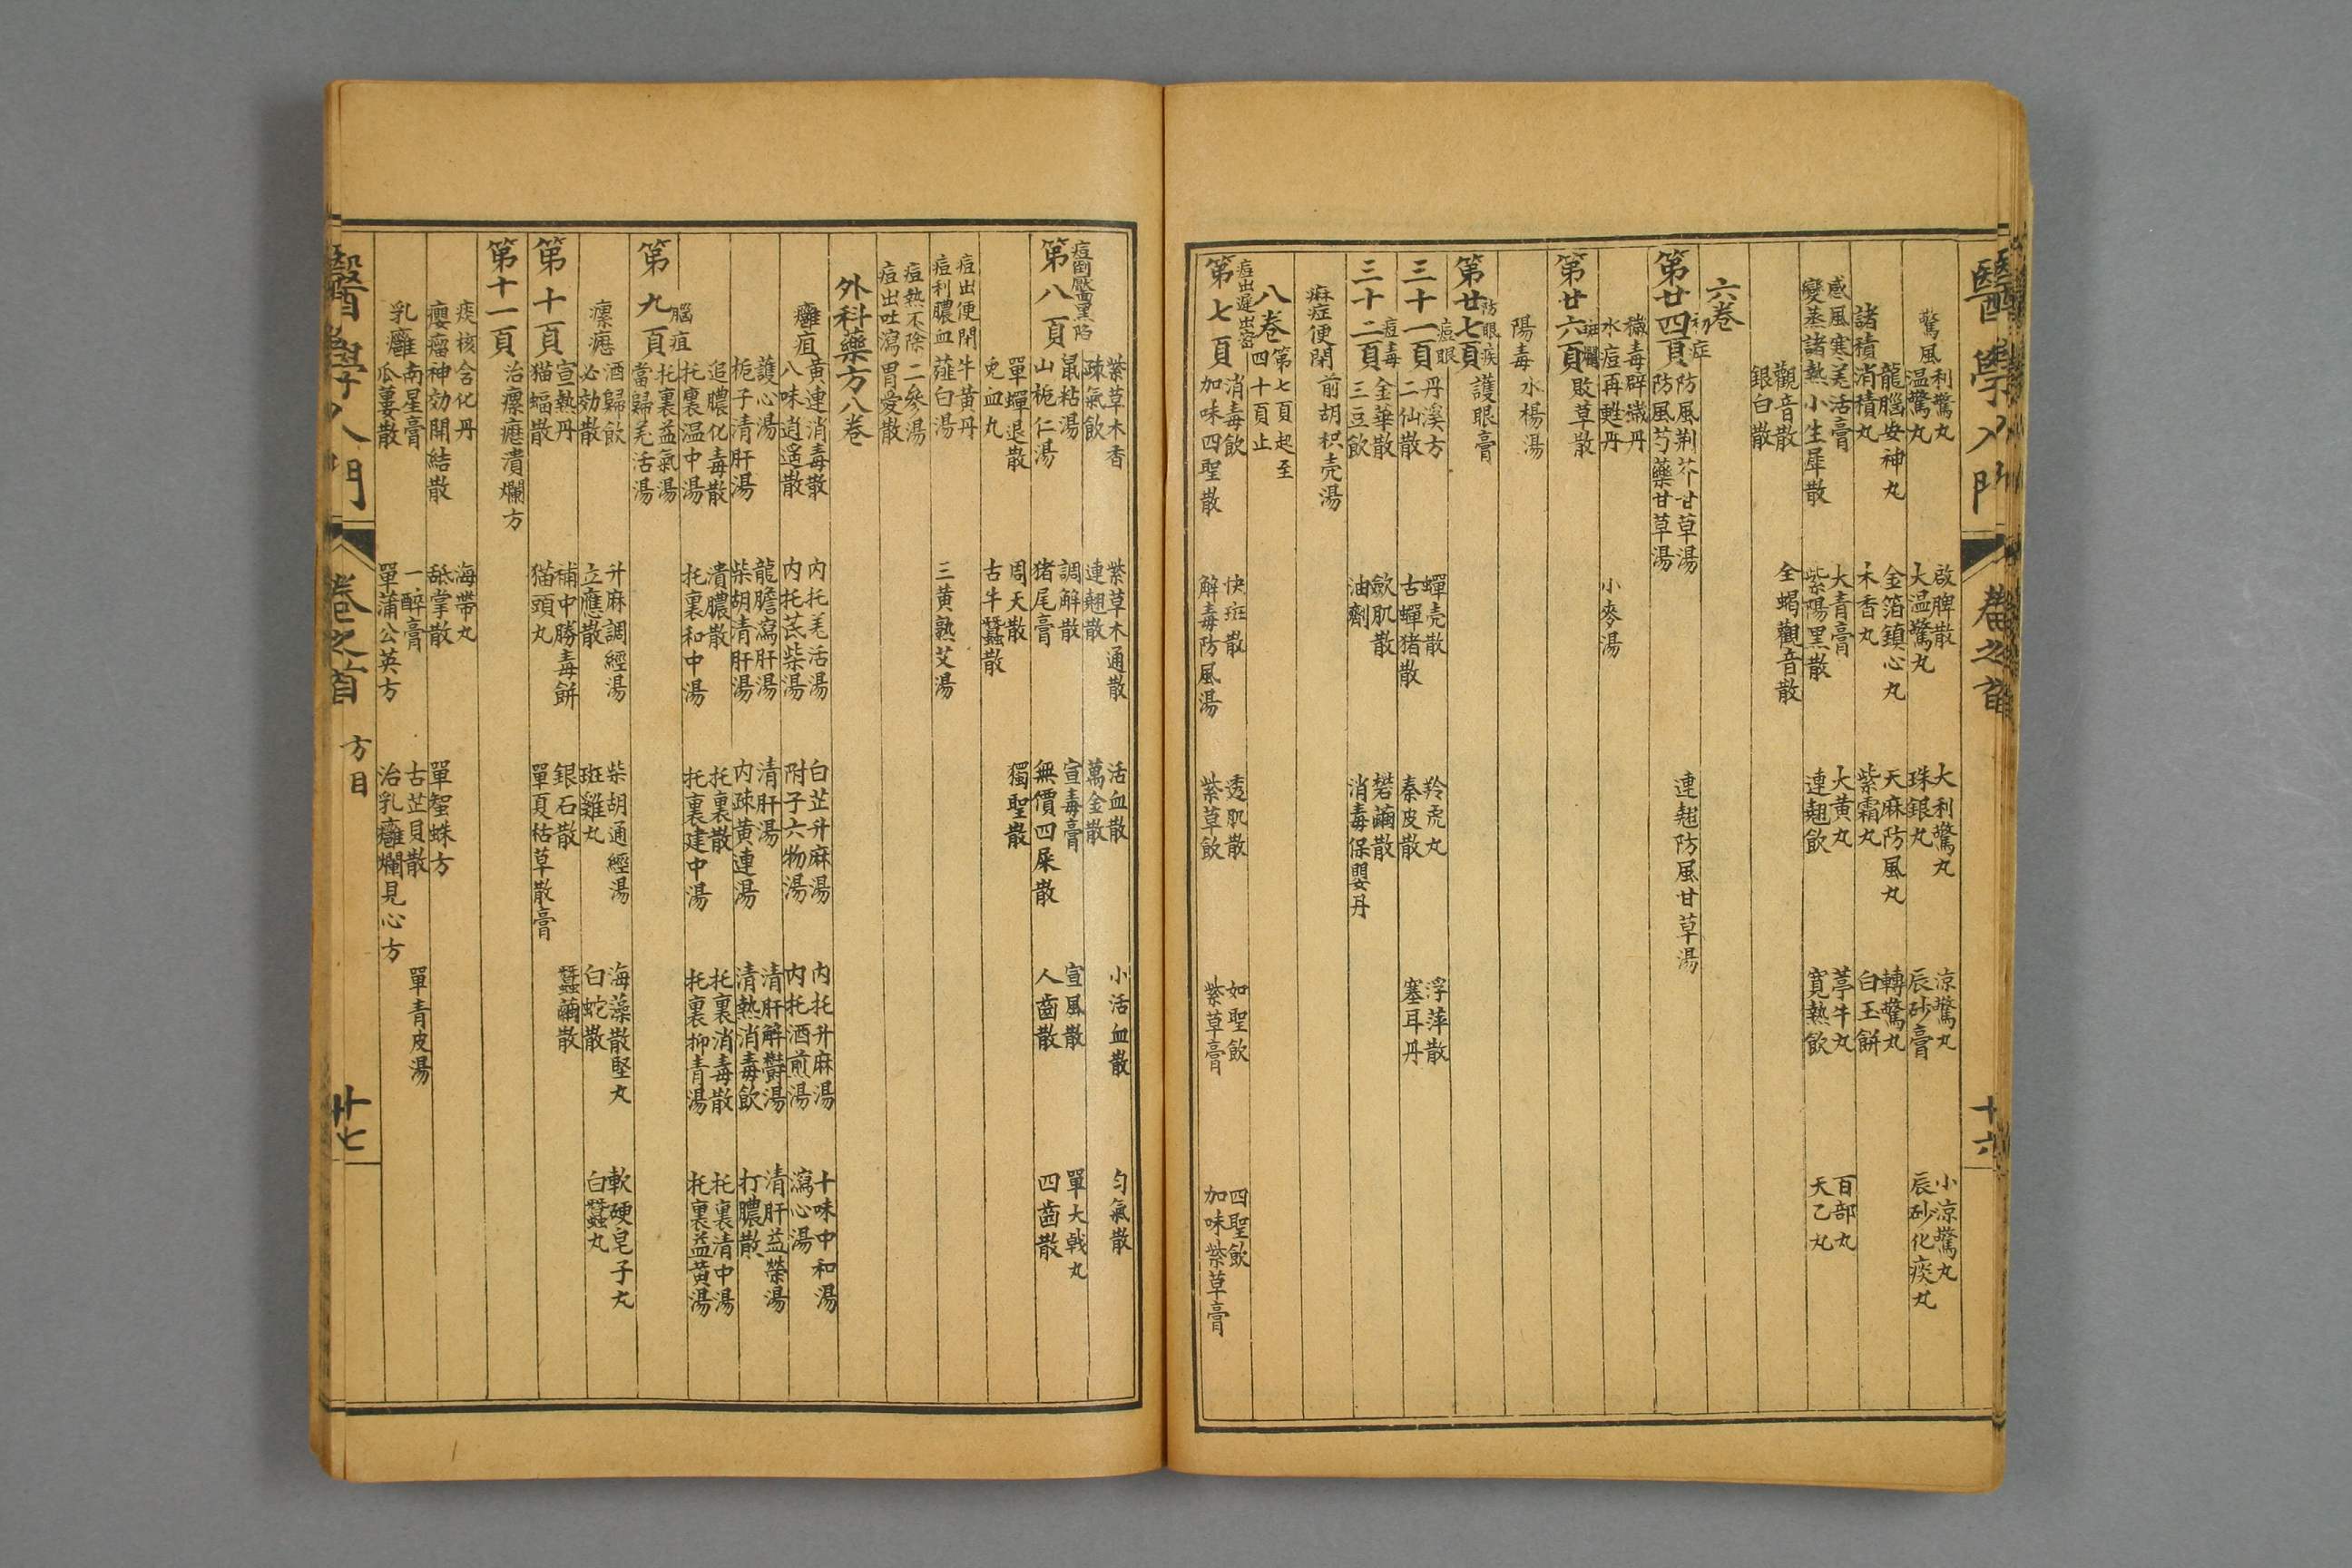 醫學入門 卷之首 十六
驚風 利驚丸 啟脾散 大利驚丸 涼驚丸 小涼驚丸
温驚丸 大温驚丸 珠銀丸 辰砂膏 辰砂化痰丸
龍腦安神丸 金箔鎮心丸 天麻防風丸 轉驚丸
諸積 消積丸 木香丸 紫霜丸 白玉餅
感風寒 羌活膏 大青膏 大黄丸 葶牛丸 百部丸
變蒸諸熱 小生犀散 紫陽黑散 連翹飲 寛熱飲 天乙丸
觀音散 全蝎觀音散
銀白散
六卷
第廿四頁 初症 防風荆芥甘草湯 連翹防風甘草湯
防風芍藥甘草湯
穢毒 辟穢丹
水痘 再甦丹 小麥湯
第廿六頁 斑爛 敗草散
陽毒 水楊湯
第廿七頁 防眼疾 護眼膏
三十一頁 痘眼 丹溪方 蟬壳散 羚虎丸 浮萍散
二仙散 古蟬猪散 秦皮散 塞耳丹
三十二頁 痘毒 金華散 斂肌散 砦繭散
三豆飲 油劑 消毒保嬰丹
麻症便閉 前胡枳壳湯
八卷 第七頁起至四十頁止
第七頁 痘出遲出密 消毒飲 快斑散 透肌散 如聖飲 四聖飲
加味四聖散 解毒防風湯 紫草飲 紫草膏 加味紫草膏
紫草木香 紫草木通散 活血散 小活血散 匀氣散
疎氣飲 連翹散 萬金散
第八頁 痘倒靨黑陷 鼠粘湯 調解散 宣毒膏 宣風散 單大戟丸
山梔仁湯 猪尾膏 無價四屎散 人齒散 四齒散
單蟬退散 周天散 獨聖散
兎血丸 古牛蠶散
痘出便閉 牛黄丹
痘利膿血 薤白湯 三黄熟艾湯
痘熱不除 二參湯
痘出吐瀉 胃愛散
外科藥方八卷
癰疽 黄連消毒散 内托羌活湯 白芷升麻湯 内托升麻湯 十味中和湯
八味逍遥散 内托芪柴湯 附子六物湯 内托酒煎湯 瀉心湯
護心湯 龍膽瀉肝湯 清肝湯 清肝解鬱湯 清肝益榮湯
梔子清肝湯 柴胡清肝湯 内疎黄連湯 清熱消毒飲 打膿散
追膿化毒散 潰膿散 托裏散 托裏消毒散 托裏清中湯
托裏温中湯 托裏和中湯 托裏建中湯 托裏抑青湯 托裏益黄湯
第九頁 腦疽 托裏益氣湯
當歸羌活湯
瘰癧 酒歸飲 升麻調經湯 柴胡通經湯 海藻散堅丸 軟硬皂子丸
必効散 立應散 斑雞丸 白蛇散 白蠶丸
第十頁 宣熱丹 補中勝毒餅 銀石散 蠶繭散
猫蝠散 猫頭丸 單頁枯草散膏
第十一頁 治瘰癧潰爛方
痰核 含化丹 海帶丸
癭瘤 神効開結散 舐掌散 單蜘蛛方
乳癰 南星膏 一醉膏 古芷貝散 單青皮湯
瓜蔞散 單蒲公英方 治乳癰爛見心方
醫學入門 卷之首 方目 十七